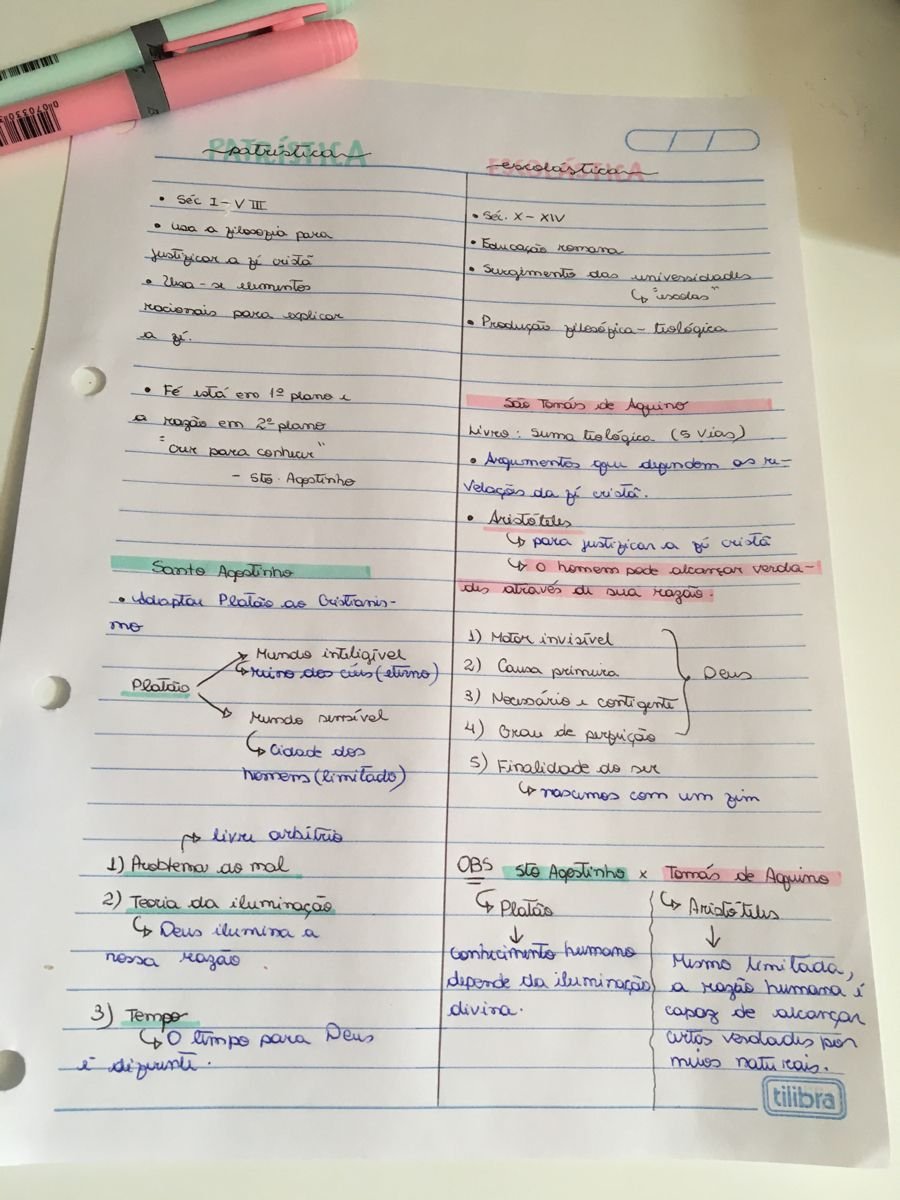 PATRÍSTICA
patrística
• Séc I-VIII
• usa a filosofia para
justificar a fé cristã
• Usa-se elementos
racionais para explicar
a fé.
• Fé está em 1º plano e
a razão em 2º plano
"crer para conhecer"
- Sto. Agostinho
Santo Agostinho
• Adaptar Platão ao Cristianis-
mo
Platão
Mundo inteligível
↳ reino dos céus (eterno)
Mundo sensível
↳ Cidade dos
homens (limitado)
livre arbítrio
1) Problema do mal
2) Teoria da iluminação
↳ Deus ilumina a
nossa razão
3) Tempo
↳ O tempo para Deus
é diferente.
ESCOLÁSTICA
escolástica
• Séc. X-XIV
• Educação romana
• Surgimento das universidades
↳ "escolas"
• Produção filosófica-teológica
São Tomás de Aquino
Livro: Suma teológica (5 vias)
• Argumentos que defendem as re-
velações da fé cristã.
• Aristóteles
↳ para justificar a fé cristã
↳ O homem pode alcançar verda-
des através de sua razão.
1) Motor invisível
2) Causa primeira
3) Necessário e contigente
4) Grau de perfeição
5) Finalidade do ser
Deus
↳ nascemos com um fim
OBS Sto Agostinho x Tomás de Aquino
↳ Platão
↓
conhecimento humano
depende da iluminação
divina.
↳ Aristóteles
↓
Mesmo limitada,
a razão humana é
capaz de alcançar
certas verdades por
meios naturais.
tilibra